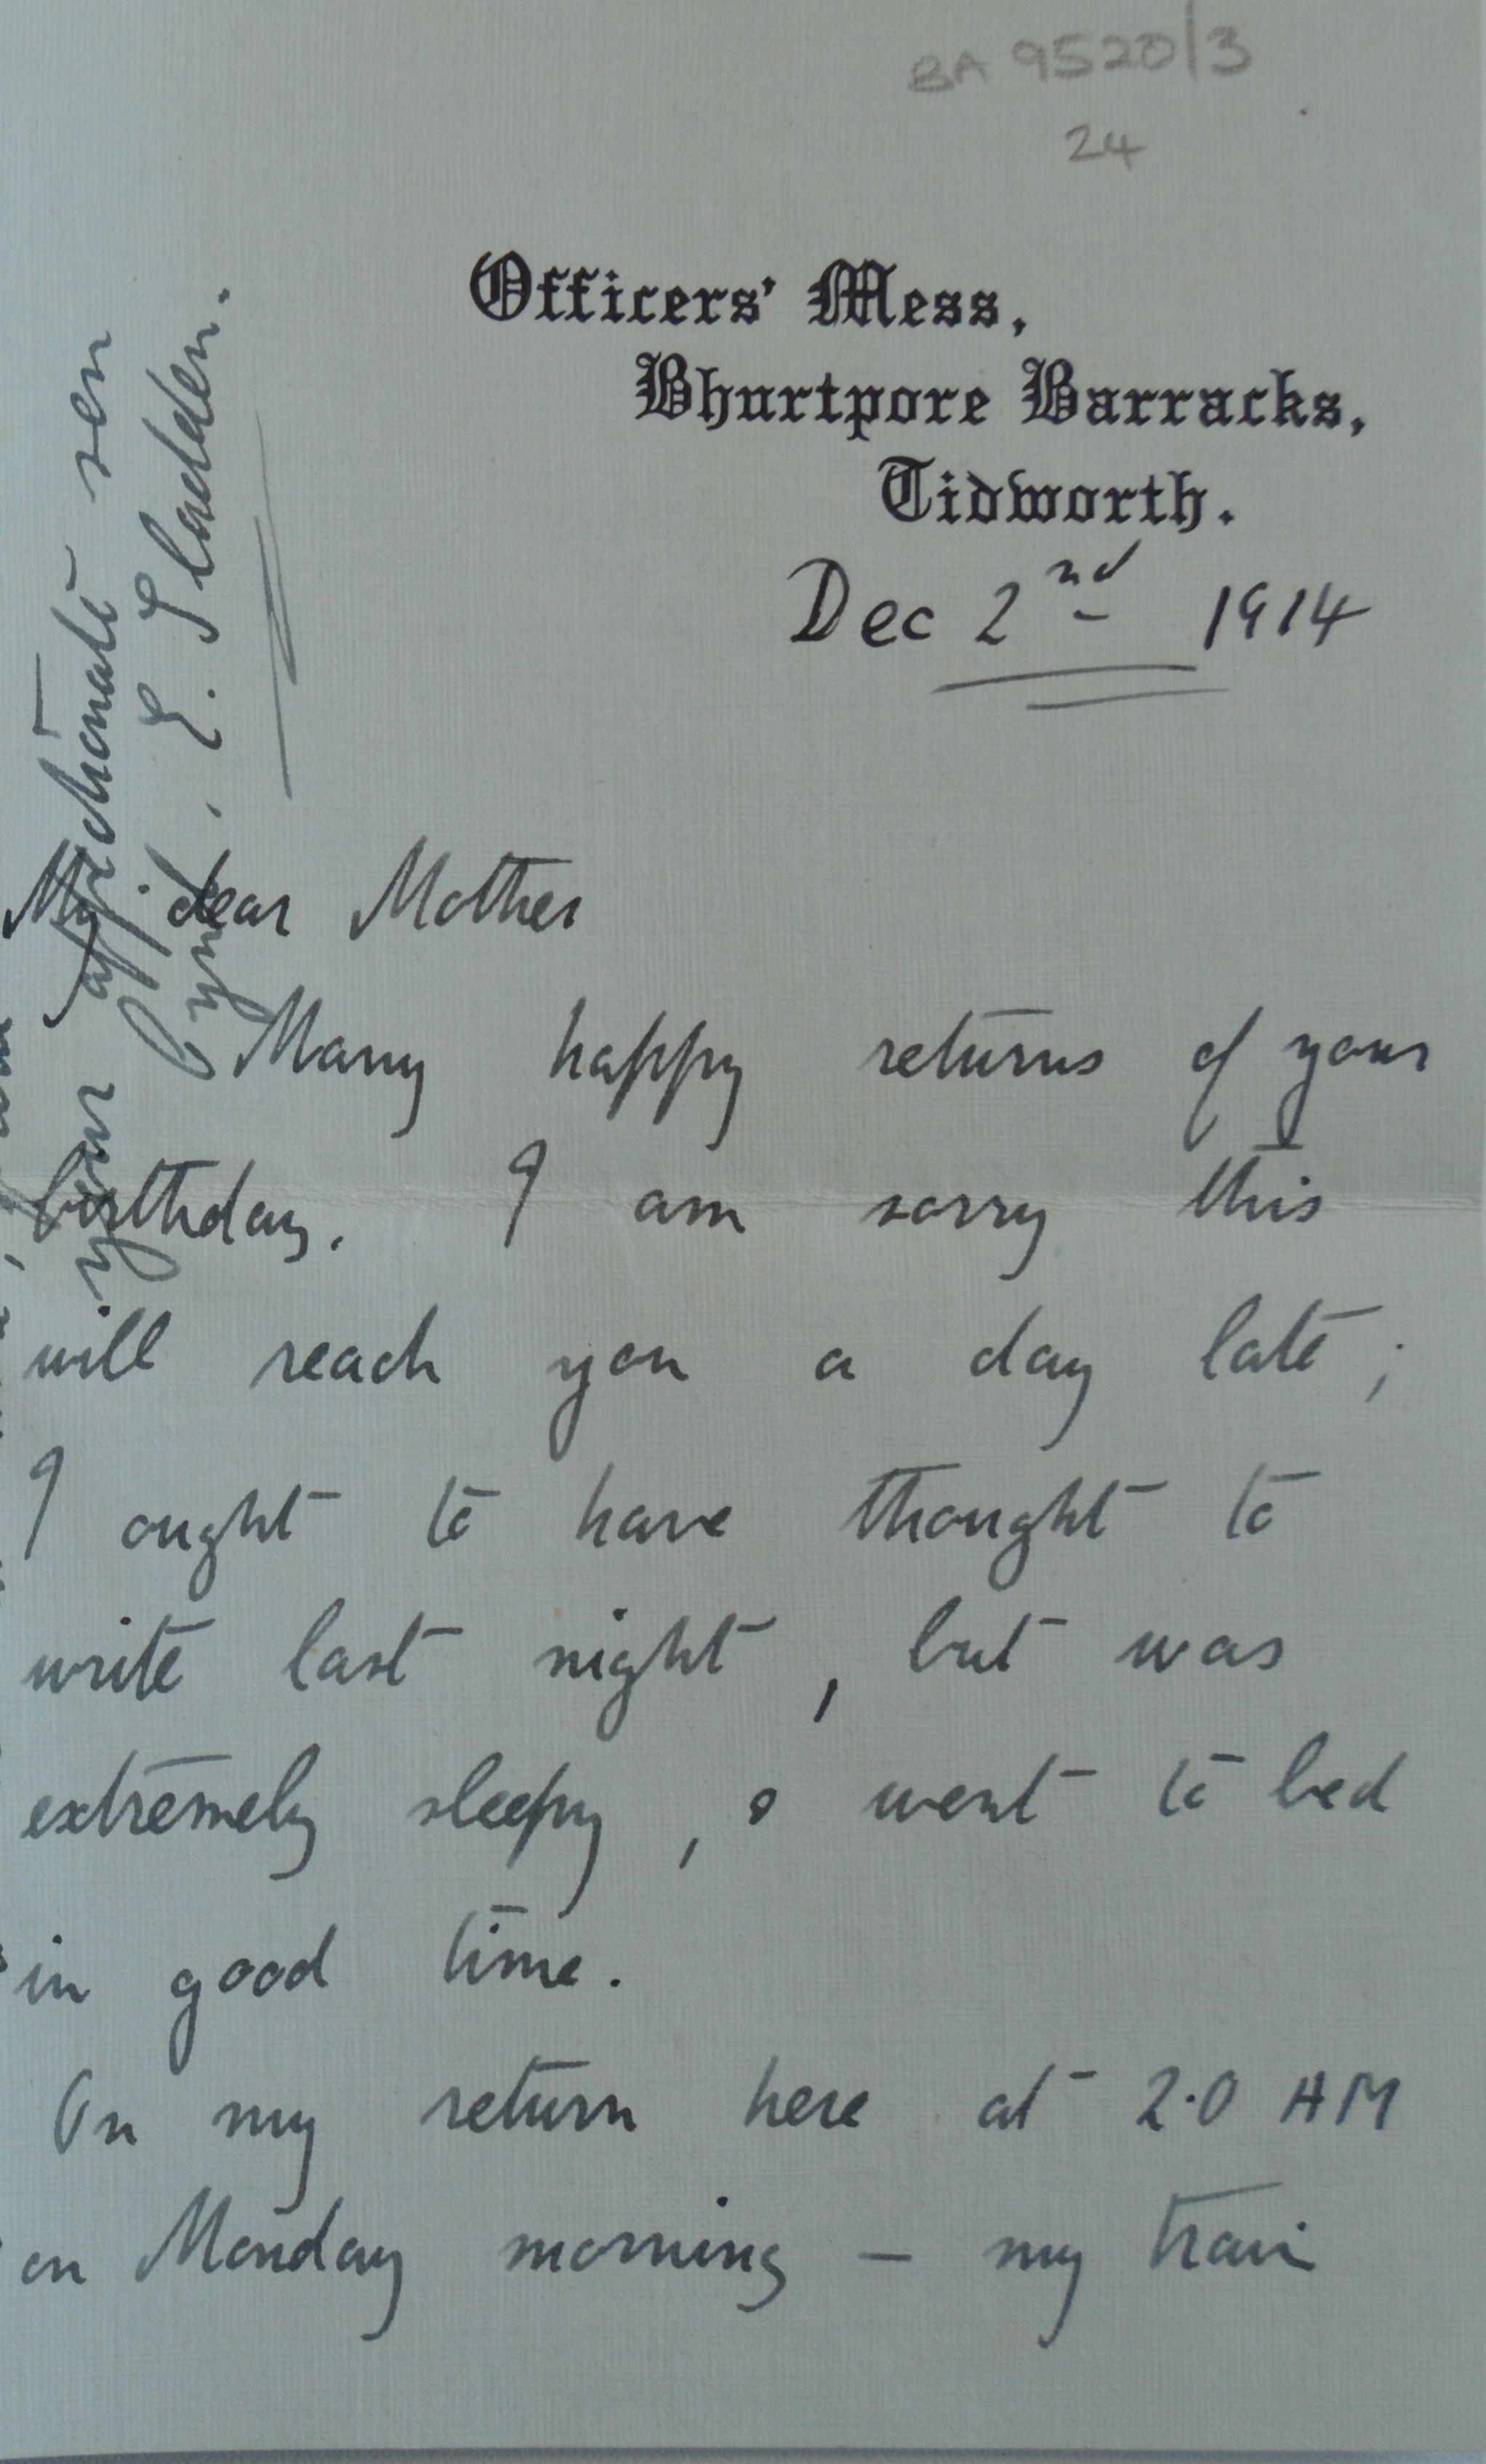 BA 9520/3
24
Officers' Mess,
Bhurtpore Barracks,
Tidworth.
Dec 2nd 1914
My dear Mother
Many happy returns of your
birthday. I am sorry this
will reach you a day late;
I ought to have thought to
write last night, but was
extremely sleepy, & went to bed
in good time.
On my return here at 2.0 AM
on Monday morning – my train
your affectionate son
Cyril. E. Sladden.